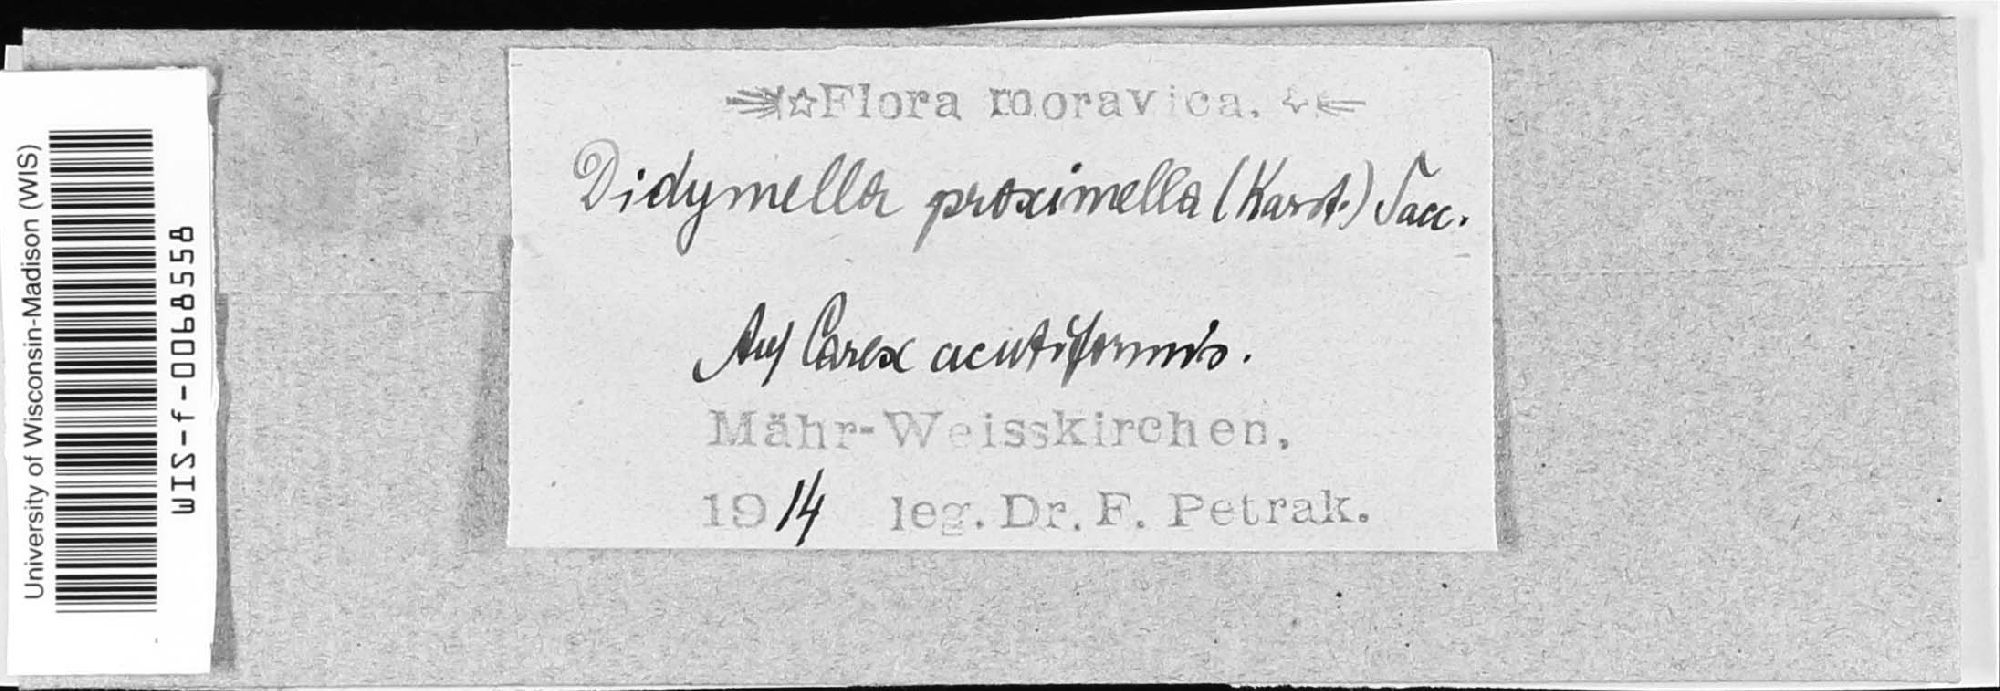 Flora moravica.
Didymella proximella (Karst.) Sacc.
Auf Carex acutiformis.
Mähr-Weisskirchen,
1914 leg. Dr. F. Petrak.
University of Wisconsin-Madison (WIS)
WIS-f-0068558